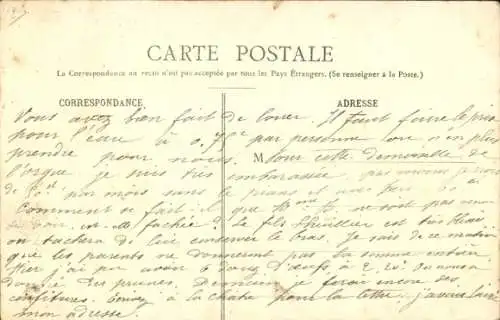 CARTE POSTALE
La Correspondance au recto n'est pas acceptée par tous les Pays Étrangers. (Se renseigner à la Poste.)
CORRESPONDANCE
ADRESSE
Vous avez bien fait de louer. Il faut faire le prix
pour l'eau à 0.75c par personne ou n'en plus
prendre pour nous. M Pour cette demoiselle de
l'orgue je suis très embarrassée, pas moins je crois
de par mois sans le piano et avec
Comment se fait-il que Mme ne soit pas venue
est-elle fachée? Le fils est très
on tachera de lui conserver le bras. Je sais de ce matin
que les parents ne donneront pas la somme entière
Hier j'ai pu avoir 6 douz d'œufs à 2,20. On nous a
donné des prunes. Demain je ferai encore des
confitures. à la
mon adresse.